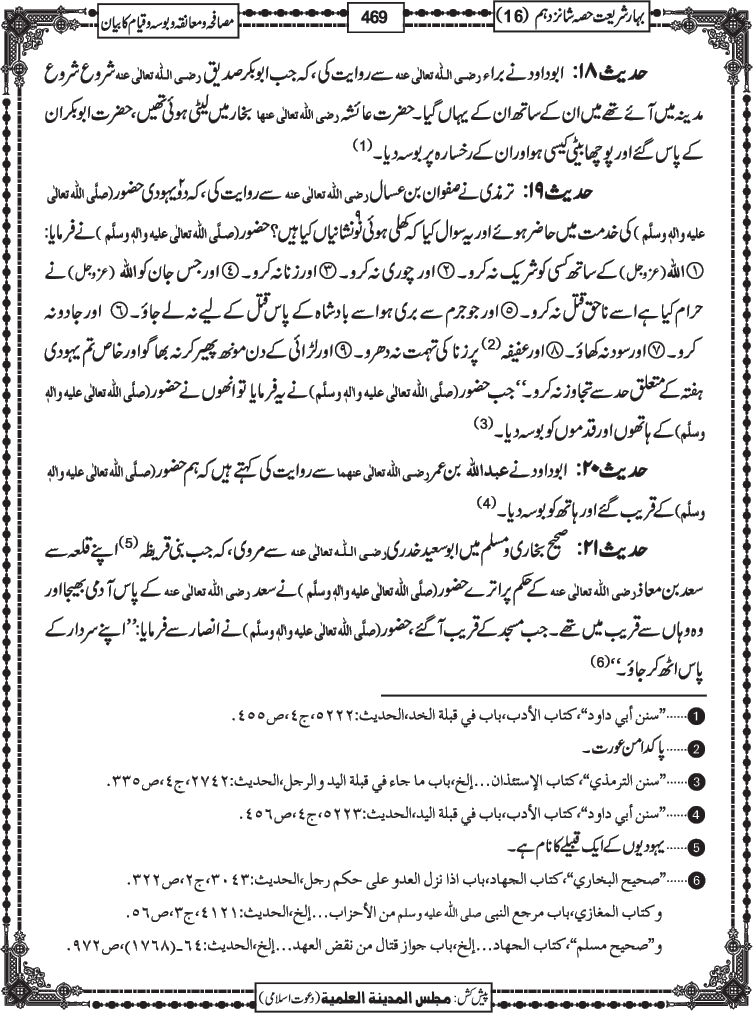 بہارِشریعت حصہ شانزدہم (16)
469
مصافحہ و معانقہ و بوسہ و قیام کا بیان
حدیث ۱۸: ابوداود نے براء رضی اللہ تعالٰی عنہ سے روایت کی، کہ جب ابوبکر صدیق رضی اللہ تعالٰی عنہ شروع شروع
مدینہ میں آئے تھے میں ان کے ساتھ ان کے یہاں گیا۔ حضرت عائشہ رضی اللہ تعالٰی عنہا بخار میں لیٹی ہوئی تھیں، حضرت ابوبکر ان
کے پاس گئے اور پوچھا بیٹی کیسی ہو اور ان کے رخسارہ پر بوسہ دیا۔ (1)
حدیث ۱۹: ترمذی نے صفوان بن عسال رضی اللہ تعالٰی عنہ سے روایت کی، کہ دو۲ یہودی حضور (صلَّی اللہ تعالٰی
علیہ واٰلہٖ وسلَّم) کی خدمت میں حاضر ہوئے اور یہ سوال کیا کہ کھلی ہوئی نو۹ نشانیاں کیا ہیں؟ حضور (صلَّی اللہ تعالٰی علیہ واٰلہٖ وسلَّم) نے فرمایا:
① اللہ (عزوجل) کے ساتھ کسی کو شریک نہ کرو۔ ② اور چوری نہ کرو۔ ③ اور زنا نہ کرو۔ ④ اور جس جان کو اللہ (عزوجل) نے
حرام کیا ہے اسے ناحق قتل نہ کرو۔ ⑤ اور جو جرم سے بری ہو اسے بادشاہ کے پاس قتل کے لیے نہ لے جاؤ۔ ⑥ اور جادو نہ
کرو۔ ⑦ اور سود نہ کھاؤ۔ ⑧ اور عفیفہ (2) پر زنا کی تہمت نہ دھرو۔ ⑨ اور لڑائی کے دن مونھ پھیر کر نہ بھاگو اور خاص تم یہودی
ہفتہ کے متعلق حد سے تجاوز نہ کرو۔‘‘ جب حضور (صلَّی اللہ تعالٰی علیہ واٰلہٖ وسلَّم) نے یہ فرمایا تو انھوں نے حضور (صلَّی اللہ تعالٰی علیہ واٰلہٖ
وسلَّم) کے ہاتھوں اور قدموں کو بوسہ دیا۔ (3)
حدیث ۲۰: ابوداود نے عبداللہ بن عمر رضی اللہ تعالٰی عنہما سے روایت کی کہتے ہیں کہ ہم حضور (صلَّی اللہ تعالٰی علیہ واٰلہٖ
وسلَّم) کے قریب گئے اور ہاتھ کو بوسہ دیا۔ (4)
حدیث ۲۱: صحیح بخاری و مسلم میں ابوسعید خدری رضی اللہ تعالٰی عنہ سے مروی، کہ جب بنی قریظہ (5) اپنے قلعہ سے
سعد بن معاذ رضی اللہ تعالٰی عنہ کے حکم پر اترے حضور (صلَّی اللہ تعالٰی علیہ واٰلہٖ وسلَّم) نے سعد رضی اللہ تعالٰی عنہ کے پاس آدمی بھیجا اور
وہ وہاں سے قریب میں تھے۔ جب مسجد کے قریب آگئے، حضور (صلَّی اللہ تعالٰی علیہ واٰلہٖ وسلَّم) نے انصار سے فرمایا: ’’اپنے سردار کے
پاس اٹھ کر جاؤ۔‘‘ (6)
1 ......”سنن أبي داود“، کتاب الأدب، باب في قبلة الخد، الحدیث: ٥٢٢٢، ج٤، ص٤٥٥.
2 ......پاکدامن عورت۔
3 ......”سنن الترمذي“، کتاب الإستئذان...إلخ، باب ما جاء في قبلة الید والرجل، الحدیث: ٢٧٤٢، ج٤، ص٣٣٥.
4 ......”سنن أبي داود“، کتاب الأدب، باب في قبلة الید، الحدیث: ٥٢٢٣، ج٤، ص٤٥٦.
5 ......یہودیوں کے ایک قبیلے کا نام ہے۔
6 ......”صحیح البخاري“، کتاب الجهاد، باب اذا نزل العدو علی حکم رجل، الحدیث: ٣٠٤٣، ج٢، ص٣٢٢.
و کتاب المغازي، باب مرجع النبی صلی اللہ علیہ وسلم من الأحزاب...إلخ، الحدیث: ٤١٢١، ج٣، ص٥٦.
و”صحیح مسلم“، کتاب الجهاد...إلخ، باب جواز قتال من نقض العهد...إلخ، الحدیث: ٦٤-(١٧٦٨)، ص٩٧٢.
پیش کش: مجلس المدینۃ العلمیۃ (دعوت اسلامی)